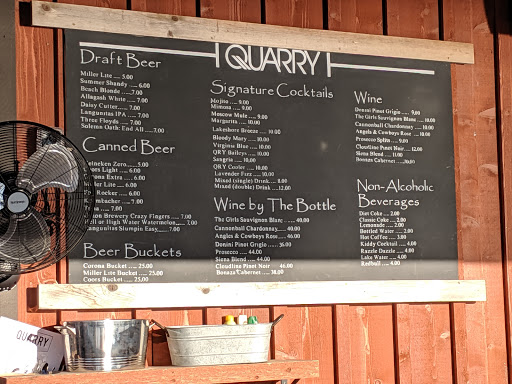 QUARRY
Draft Beer
Miller Lite .... 5.00
Summer Shandy .... 6.00
Beach Blonde .....7.00
Allagash White ..... 7.00
Daisy Cutter...... 7.00
Langunitas IPA ..... 7.00
Three Floyds .... 7.00
Solemn Oath: End All .....7.00
Canned Beer
Heineken Zero......5.00
Coors Light .....6.00
Corona Extra .....6.00
Miller Lite .....6.00
Rocker .....6.00
7.00
7.00
Brewery Crazy Fingers ..... 7.00
High Water Watermelon.....7.00
Langunitas Slumpin Easy.....7.00
Beer Buckets
Corona Bucket ..... 25.00
Miller Lite Bucket ..... 25.00
Coors Bucket ..... 25.00
Signature Cocktails
Mojito .... 9.00
Mimosa .... 9.00
Moscow Mule .... 9.00
Margarita .... 10.00
Lakeshore Breeze .... 10.00
Bloody Mary .... 10.00
Virginia Blue .... 10.00
QRY Baileys .... 10.00
Sangria .... 10.00
QRY Cooler .... 10.00
Lavender Fizz .... 10.00
Mixed (single) Drink.... 8.00
Mixed (double) Drink ....12.00
Wine by The Bottle
The Girls Sauvignon Blanc .... 40.00
Cannonball Chardonnay.....40.00
Angles & Cowboys Rose .....46.00
Donini Pinot Grigio ..... 36.00
Prosecco ..... 44.00
Siena Blend ..... 44.00
Cloudline Pinot Noir ..... 46.00
Bonaza Cabernet ..... 38.00
Wine
Donini Pinot Grigio .... 9.00
The Girls Sauvignon Blanc .... 10.00
Cannonball Chardonnay ....10.00
Angels & Cowboys Rose ....10.00
Prosecco Splits .... 9.00
Cloudline Pinot Noir.....12.00
Siena Blend .... 11.00
Bonaza Cabernet .....10.00
Non-Alcoholic
Beverages
Diet Coke .... 2.00
Classic Coke .... 2.00
Lemonade .... 2.00
Bottled Water .... 2.00
Hot Coffee .... 3.00
Kiddy Cocktail .... 4.00
Razzle Dazzle .... 4.00
Lake Water .... 4.00
Redbull .... 4.00
QUARRY